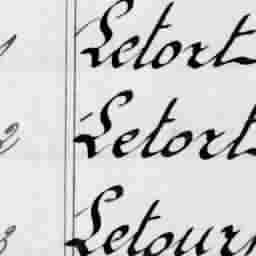 1 Letort
2 Letort
3 Letour